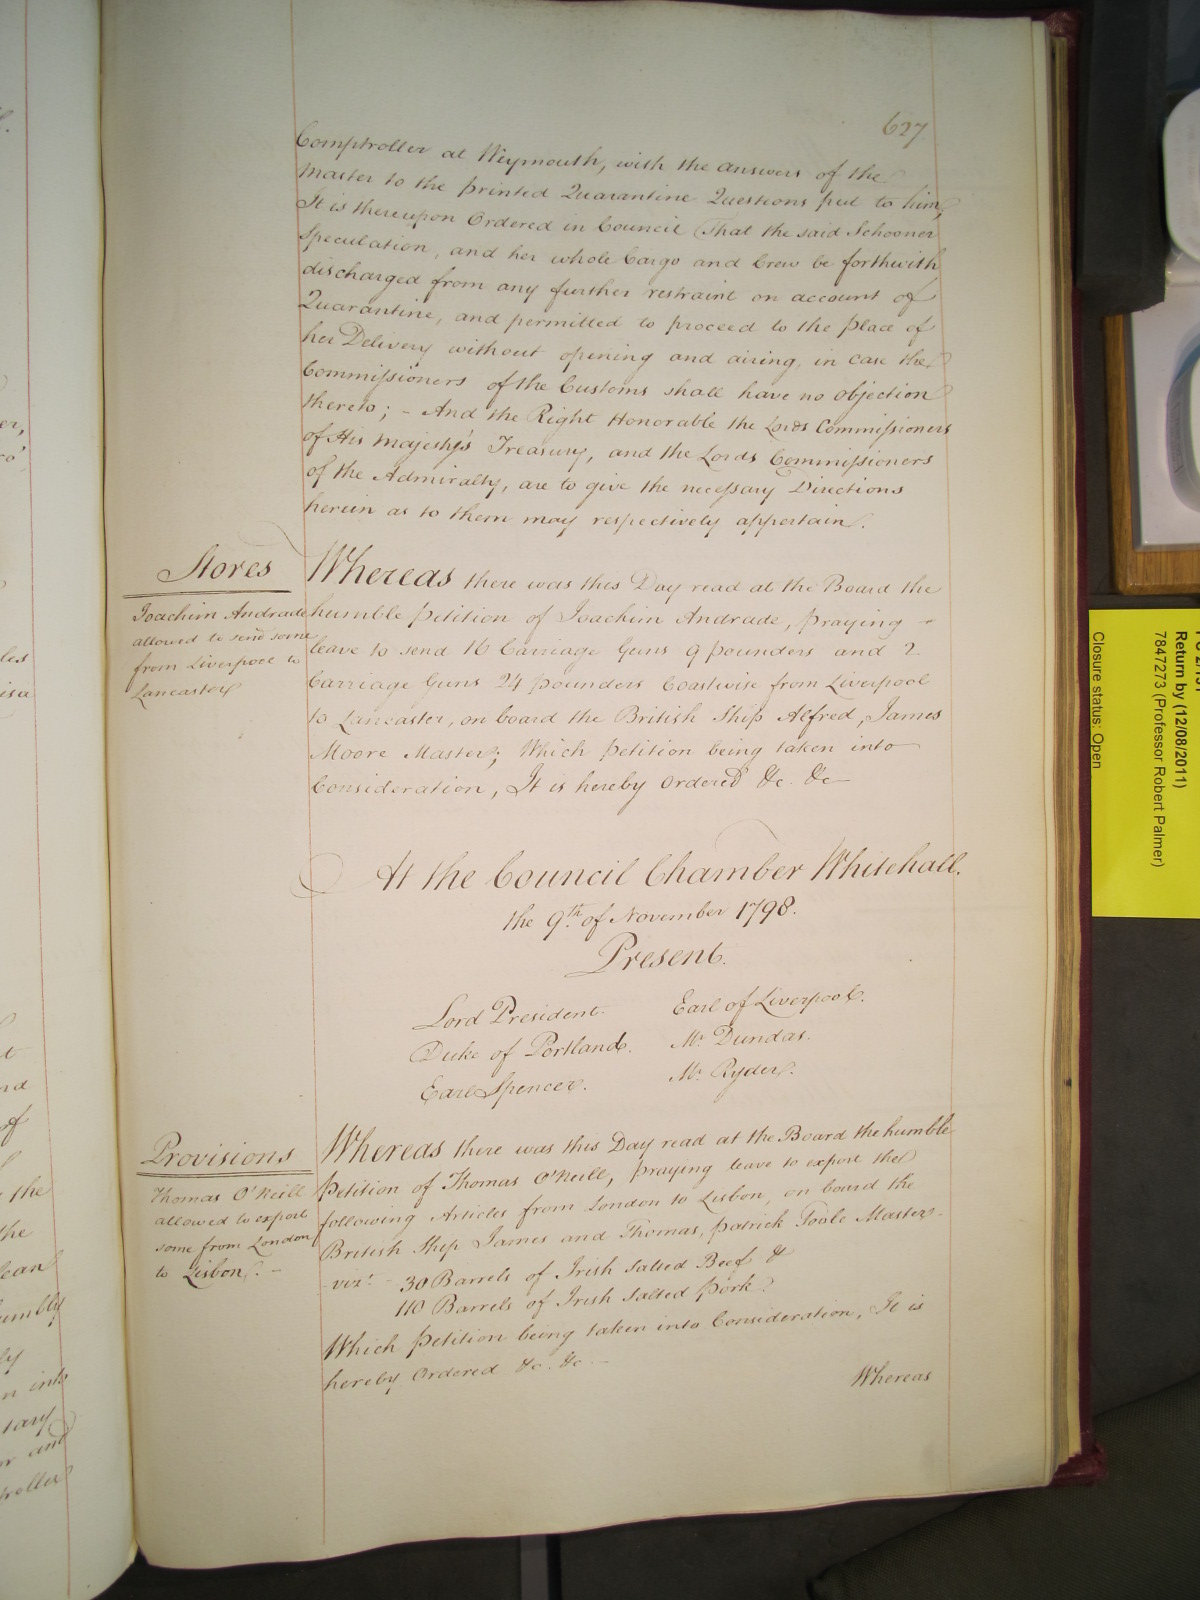 627
Comptroller at Weymouth, with the answers of the
Master to the printed Quarantine Questions put to him,
It is thereupon Ordered in Council That the said Schooner
Speculation, and her whole Cargo and Crew be forthwith
discharged from any further restraint on account of
Quarantine, and permitted to proceed to the place of
her Delivery without opening and airing, in case the
Commissioners of the Customs shall have no objection
thereto; - And the Right Honorable the Lords Commissioners
of His Majesty's Treasury, and the Lords Commissioners
of the Admiralty, are to give the necessary Directions
herein as to them may respectively appertain.
Stores
Joachim Andrade
allowed to send some
from Liverpool to
Lancaster
Whereas there was this Day read at the Board the
humble Petition of Joachim Andrade, praying -
leave to send 16 Carriage Guns 9 pounders and 2
Carriage Guns 24 pounders Coastwise from Liverpool
to Lancaster, on board the British Ship Alfred, James
Moore Master; Which Petition being taken into
Consideration, It is hereby Ordered &c. &c
At the Council Chamber Whitehall.
the 9th. of November 1798.
Present.
Lord President.
Duke of Portland.
Earl Spencer.
Earl of Liverpool.
Mr. Dundas.
Mr. Ryder.
Provisions
Thomas O'Neill
allowed to export
some from London
to Lisbon. -
Whereas there was this Day read at the Board the humble
Petition of Thomas O'Neill, praying leave to export the
following Articles from London to Lisbon, on board the
British Ship James and Thomas, Patrick Toole Master -
vizt. - 30 Barrels of Irish Salted Beef &
110 Barrels of Irish Salted Pork
Which Petition being taken into Consideration, It is
hereby Ordered &c. &c. -
Whereas
Return by (12/08/2011)
7847273 (Professor Robert Palmer)
Closure status: Open